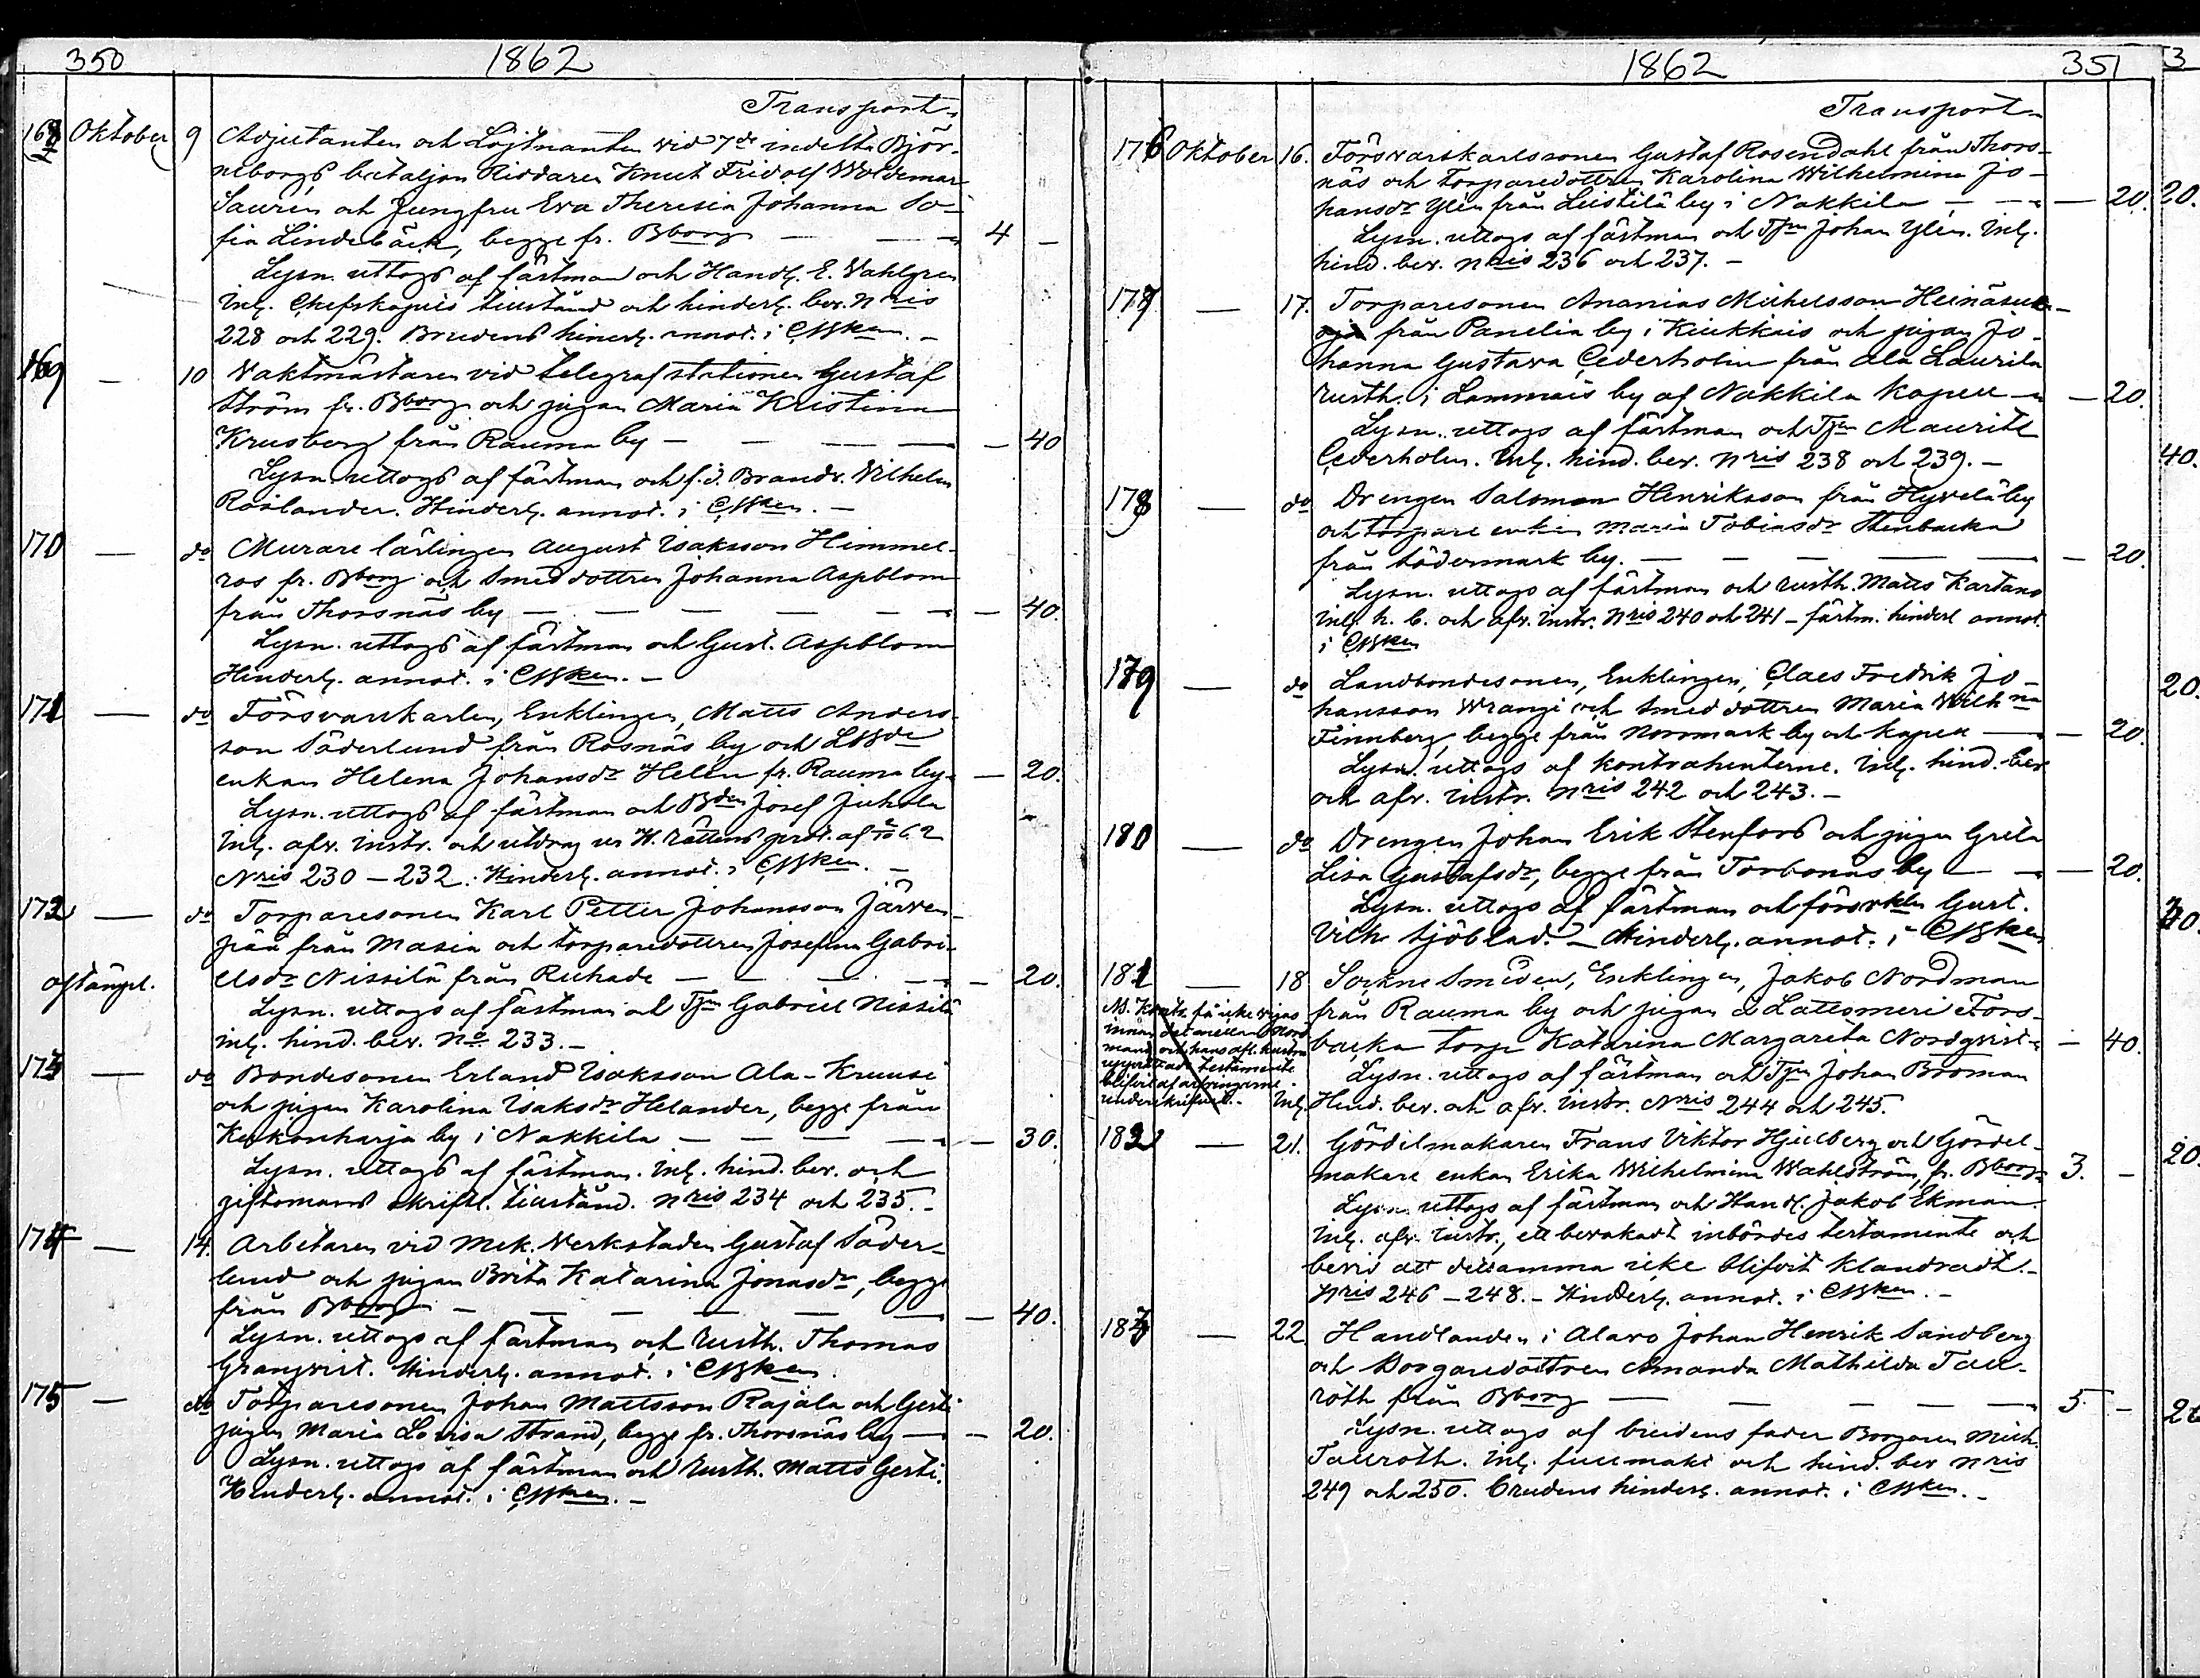 350 1862
Transport
168 Oktober 9 Adjutanten och Löjtnanten vid 7de indelta Björ-
neborgs bataljon Riddaren Knut Fridolf Woldemar
Saurén och Jungfru Eva Theresia Johanna So-
fia Lindebäck, begge fr. Bborg — — 4 —
Lysn. uttogs af fästman och Handl. E. Vahlgren
Inl. Chefskapets tillstånd och hinderl. bev. Nris
228 och 229. Brudens hinderl. annot. i CMken. —
169 — 10 Vaktmästaren vid telegrafstationen Gustaf
Ström fr. Bborg och pigan Maria Kristina
Krusberg från Rauma by — — — — 40
Lysn. uttogs af fästman och f.d. Brandv. Vilhelm
Roslander. Hinderl. annot. i CMken. —
170 — do Murare lärlingen August Isaksson Himmel-
ros fr. Bborg och Smeddottren Johanna Aspblom
från Thorsnäs by — — — — — 40.
Lysn. uttogs af fästman och Gust. Aspblom
Hinderl. annot. i CMken. —
171 — do Försvarskarlen, Enklingen, Matts Anders-
son Söderlund från Rosnäs by och
enkan Helena Johansdr Helin fr. Rauma by — 20.
Lysn. uttogs af fästman och Bden Josef Juhola
Inl. afv. instr. och utdrag ur H. Rättens prot. af
Nris 230 – 232. Hinderl. annot. i CMken. —
172 — do Torparesonen Karl Petter Johansson Järven-
pää från Masia och torparedottren Josefina Gabri-
afstängd. elsdr Nissilä från Ruhade — — — — 20.
Lysn. uttogs af fästman och Tjrn Gabriel Nissilä
inl. hind. bev. No 233. —
173 — do Bondesonen Erland Isaksson Ala-Kruusi
och pigan Karolina Isaksdr Helander, begge från
Kukonharja by i Nakkila — — — — 30.
Lysn. uttogs af fästman. Inl. hind. bev. och
giftomans skriftl. tillstånd. Nris 234 och 235. —
174 — 14. Arbetaren vid Mek. Verkstaden Gustaf Söder-
lund och pigan Brita Katarina Jonasdr, begge
från Bborg — — — — — 40.
Lysn. uttogs af fästman och Rusth. Thomas
Granqvist. Hinderl. annot. i CMken.
175 — do Torparesonen Johan Mattsson Rajala och Gesti
pigan Maria Lovisa Strand, begge fr. Thorsnäs by — — 20.
Lysn. uttogs af fästman och Rusth. Matts Gesti.
Hinderl. annot. i CMken. —
1862 351
Transport
176 Oktober 16. Försvarskarlssonen Gustaf Rosendahl från Thors-
näs och torparedottren Karolina Wilhelmina Jo-
hansdr Ylén från Leistilä by i Nakkila — — — 20.
Lysn. uttogs af fästman och Tjrn Johan Ylén. Inl.
hind. bev. Nris 236 och 237. —
177 — 17. Torparesonen Ananias Mickelsson Heinäsuo-
från Panelia by i Kiukkais och pigan Jo-
hanna Gustava Cederholm från Ala Laurila
rusth. i Lammais by af Nakkila Kapell — — 20.
Lysn. uttogs af fästman och Tjrn Maurits
Cederholm. Inl. hind. bev. Nris 238 och 239. —
178 — do Drengen Salomon Henriksson från Hyvelä by
och torpare enkan Maria Tobiasdr Stenbacka
från Södermark by. — — — — — 20.
Lysn. uttogs af fästman och rusth. Matts Kartano
Inl. h. b. och afv. instr. Nris 240 och 241 – fästm. hinderl annot.
i CMken
179 — do Landbondesonen, Enklingen, Claes Fredrik Jo-
hansson Wrangi och smeddottren Maria Wilhna
Finnberg, begge från Norrmark by och Kapell — — 20.
Lysn. uttogs af kontrahenterne. Inl. hind. bev
och afv. instr. Nris 242 och 243. —
180 — do Drengen Johan Erik Stenfors och pigan Greta
Lisa Gustafsdr, begge från Torbonäs by — — — 20.
Lysn. uttogs af fästman och försvkln Gust.
Vilh Sjöblad. — Hinderl. annot. i CMken
181 — 18 Sockne Smeden, Enklingen, Jakob Nordman
från Rauma by och pigan å Lattomeri Fors-
backa torp Katarina Margareta Nordqvist — 40.
Lysn. uttogs af fästman och Tjrn Johan Broman
Inl. Hind. bev. och afv. instr. Nris 244 och 245.
NB. Kontr. få icke vigas
innan det mellan Nord-
man och hans afl. hustru
upprättade testamente
blifvit af arfvingarne
underskrifvet.
182 — 21. Gördelmakaren Frans Viktor Hjelberg och Gördel-
makare enkan Erika Wilhelmina Wahlström, fr. Bborg 3. —
Lysn. uttogs af fästman och Handl. Jakob Ekman
Inl. afv. instr., ett bevakadt inbördes testamente och
bevis att detsamma icke blifvit klandradt. —
Nris 246 – 248. — Hinderl. annot. i CMken. —
183 — 22 Handlanden i Alavo Johan Henrik Sandberg
och Borgaredottren Amanda Mathilda Tall-
roth från Bborg — — — — — 5 —
Lysn. uttogs af brudens fader Borgaren Mich.
Tallroth. Inl. fullmakt och hind. bev Nris
249 och 250. Brudens hinderl. annot. i CMken. —
3
20.
40.
20.
20.